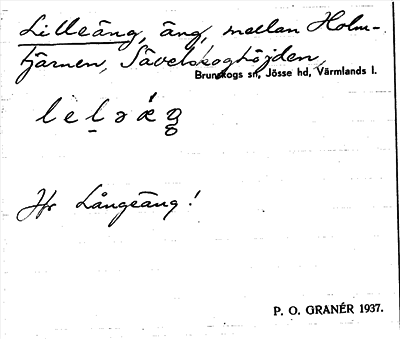 Lilleäng, äng, mellan Holm-
tjärnen, Sävelskoghöjden,
Brunskogs sn, Jösse hd, Värmlands l.
Jfr Långeäng!
P. O. GRANÉR 1937.